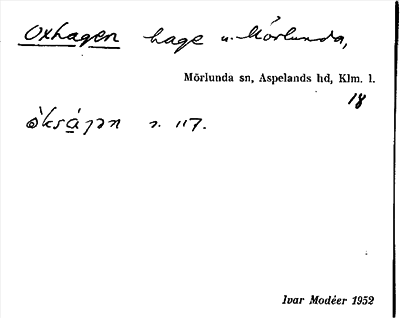 Oxhagen hage u. Mörlunda,
Mörlunda sn, Aspelands hd, Klm. l.
18
s. 117.
Ivar Modéer 1952